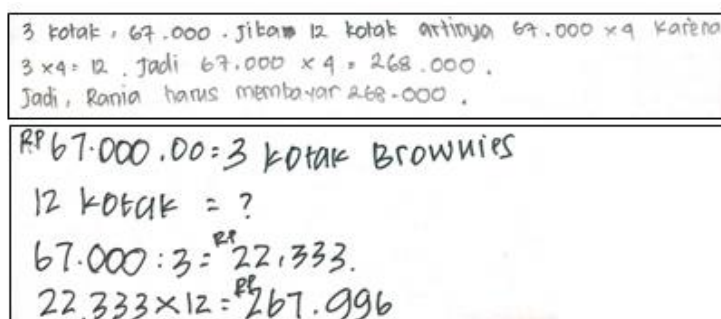 3 kotak, 67.000. Jika 12 kotak artinya 67.000 x 4 karena
3 x 4 = 12. Jadi 67.000 x 4 = 268.000.
Jadi, Rania harus membayar 268.000.
RP 67.000.00 = 3 kotak Brownies
12 kotak = ?
67.000 : 3 = RP 22.333.
22.333 x 12 = RP 267.996